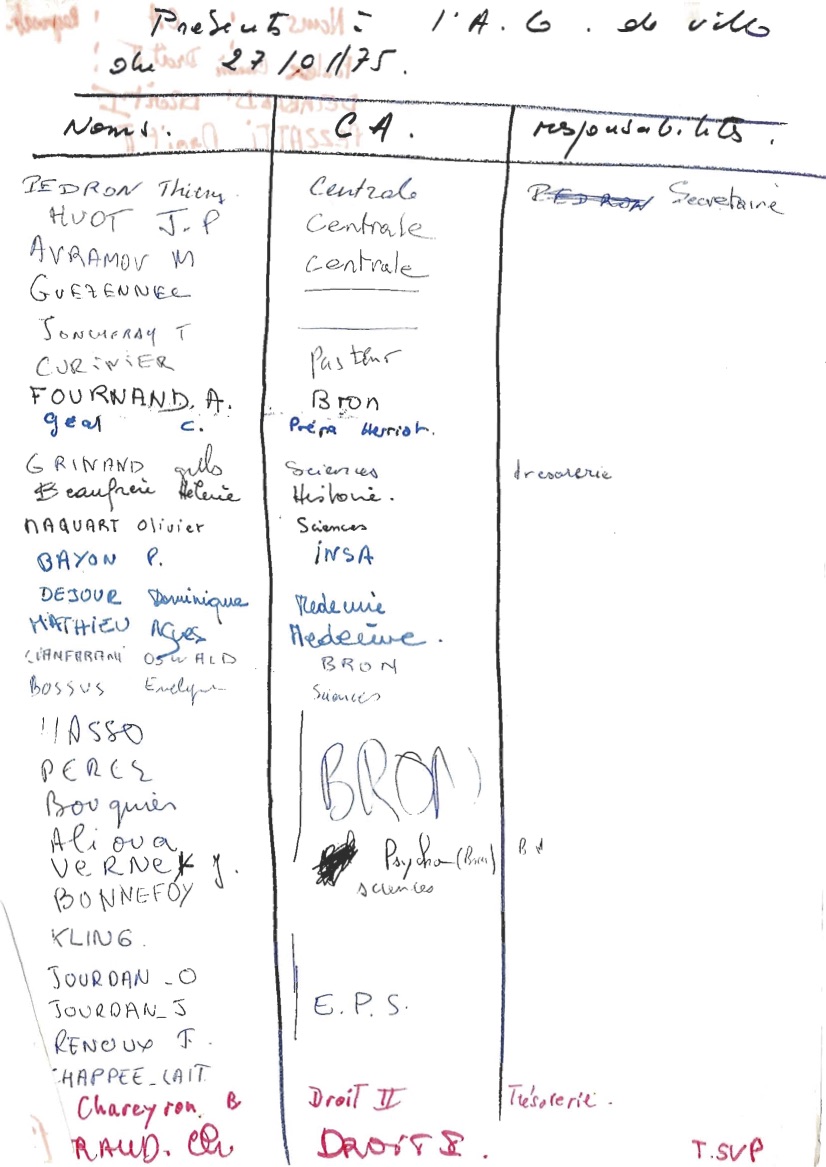 Présents à l'A.G. de ville
du 27/01/75.
Noms. C A. responsabilités.
PEDRON Thierry Centrale PEDRON Secrétaire
HUOT J.P Centrale
AVRAMOV M Centrale
GUEZENNEC
JONCHERAY T
CURINIER Pasteur
FOURNAND. A. Bron
Géal C. Prépa Herriot.
GRINAND Sciences trésorerie
Beaufrère Hélène Histoire.
MAQUART Olivier Sciences
BAYON P. INSA
DEJOUR Dominique Médecine
MATHIEU Agnes Médecine.
CIANFARANI OSWALD BRON
BOSSUS Evelyne Sciences
MASSO
PEREZ BRON
Bouquier
Aliova
VERNEY J. Psycho (Bron)
BONNEFOY sciences
KLING.
JOURDAN_O
JOURDAN_J E.P.S.
RENOUX F.
CHAPPEE_LAIT
Chareyron B Droit II Trésorerie.
RAUD. Ch DROIT I. T.SVP